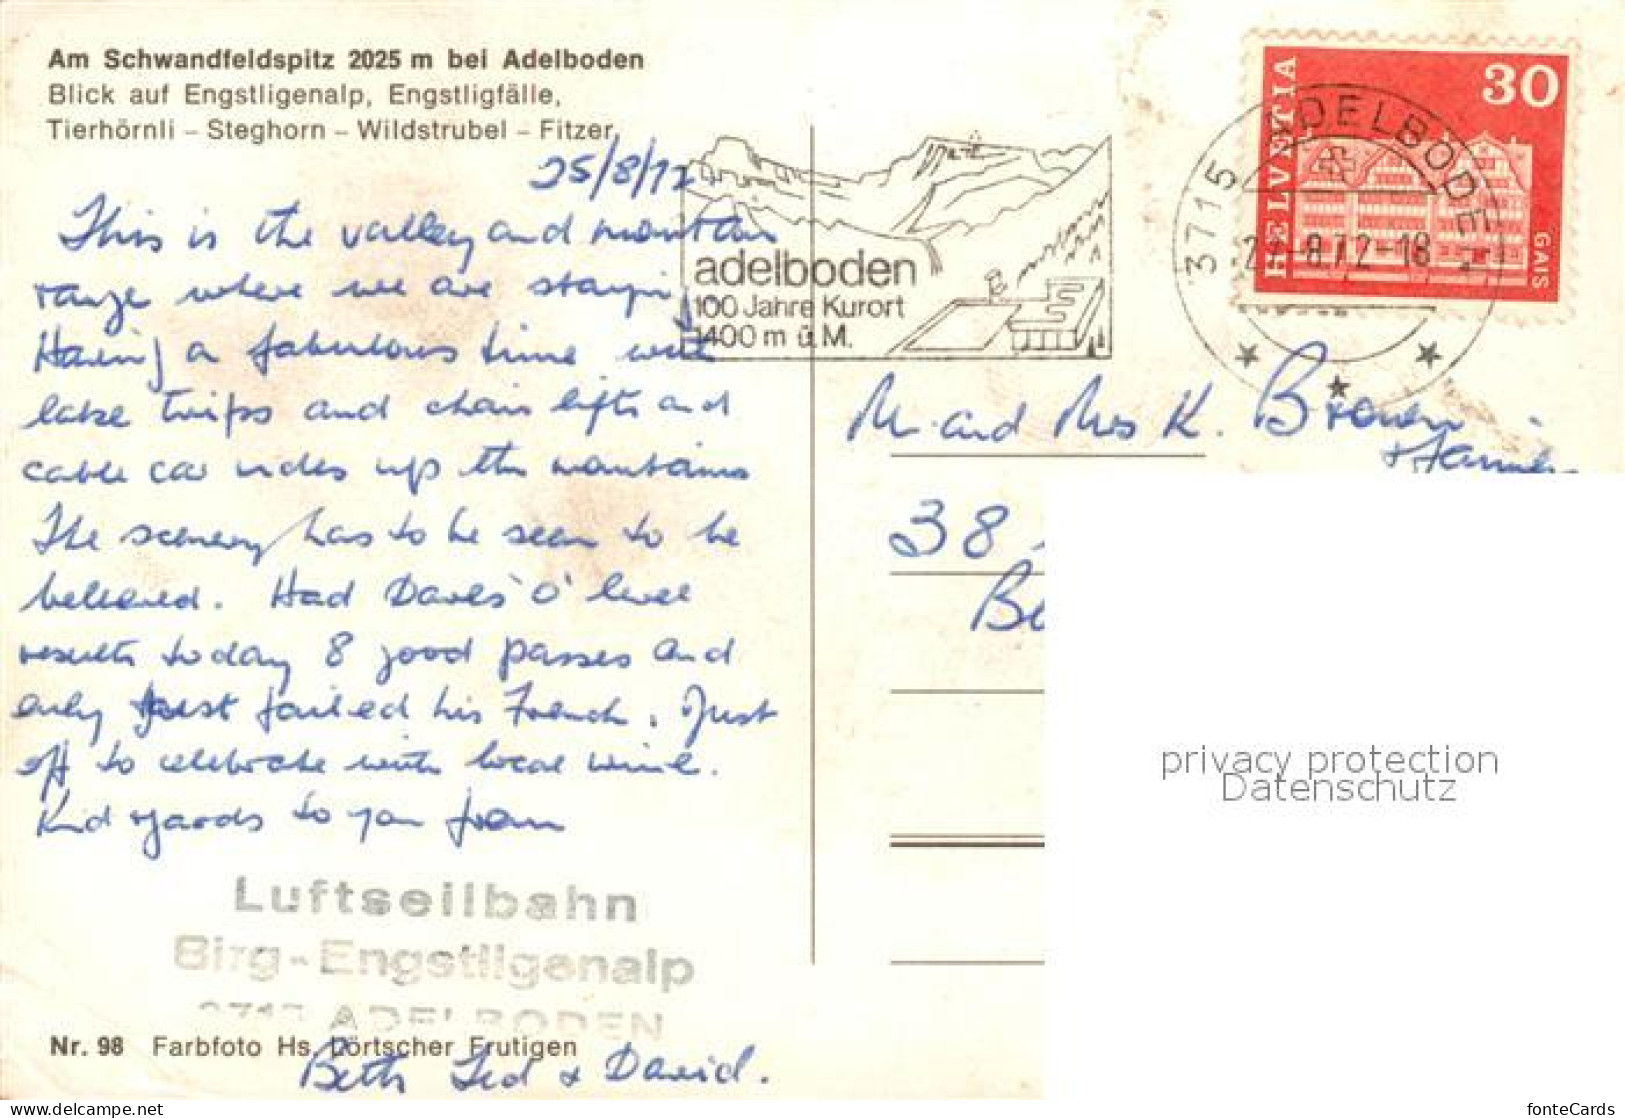 Am Schwandfeldspitz 2025 m bei Adelboden
Blick auf Engstligenalp, Engstligfälle,
Tierhörnli – Steghorn – Wildstrubel – Fitzer
25/8/72
This is the valley and mountain
range where we are staying
Having a fabulous time with
lake trips and chair lifts and
cable car rides up the mountains
The scenery has to be seen to be
believed. Had Daves 'O' level
results today 8 good passes and
only just failed his French. Just
off to celebrate with local wine.
Kind regards to you from
Beth Ted & David.
Luftseilbahn
Birg-Engstligenalp
3715 ADELBODEN
Nr. 98 Farbfoto Hs. Lörtscher Frutigen
adelboden
100 Jahre Kurort
1400 m ü. M.
3715 ADELBODEN
8.72-18
HELVETIA
30
GAIS
Mr. and Mrs K. Brown
& Family
38
Be
privacy protection
Datenschutz
fonteCards